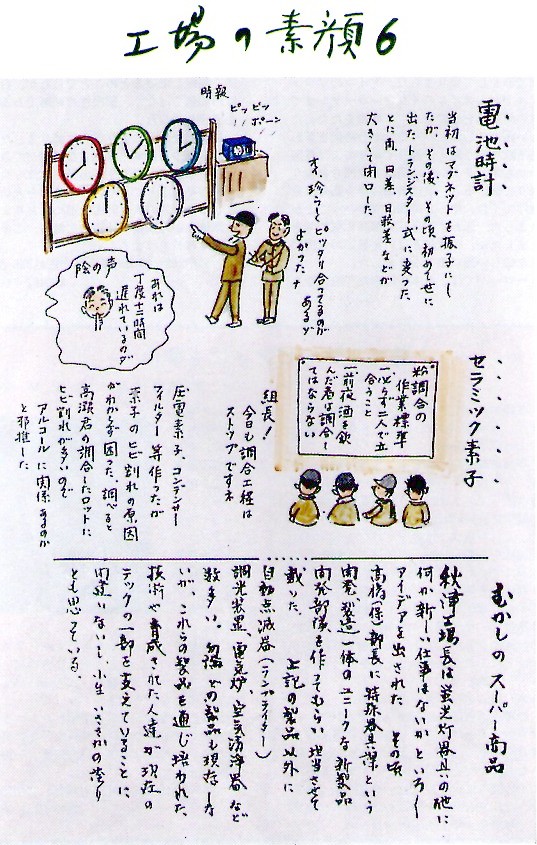 工場の素顔6
電池時計
当初はマグネットを振子にし
たが、その後、その頃初めて世に
出たトランジスター式に変った。
とに角、日差、日較差などが
大きくて閉口した
時報
ピッピッ
ポーン
オイ、珍らしくピッタリ合ってるのが
あるゾ
よかったナ
陰の声
あれは
丁度十二時間
遅れているのダ
セラミック素子
粉調合の
作業標準
一、必らず二人で立
合うこと
一、前夜酒を飲
んだ者は調合し
てはならない
組長!
今日も調合工程は
ストップですネ
圧電素子、コンデンサー
フィルター等作ったが
素子のヒビ割れの原因
がわからず困った。調べると
高瀬君の調合したロットに
ヒビ割れが多いので
アルコールに関係あるのか
と邪推した
むかしのスーパー商品
秋津工場長は蛍光灯器具の他に
何か新しい仕事はないかといろいろ
アイデアを出された その頃
高橋(保)部長に特殊器具課という
開発製造一体のユニークな新製品
開発部隊を作ってもらい担当させて
戴いた。 上記の製品以外に
自動点滅器(テンプライター)
調光装置、電気炉、空気清浄器など
数多い。勿論どの製品も現存しな
いが、これらの製品を通じ培われた
技術や育成された人達が現在の
テックの一部を支えていることに
間違いないし、小生いささかの誇り
とも思っている。